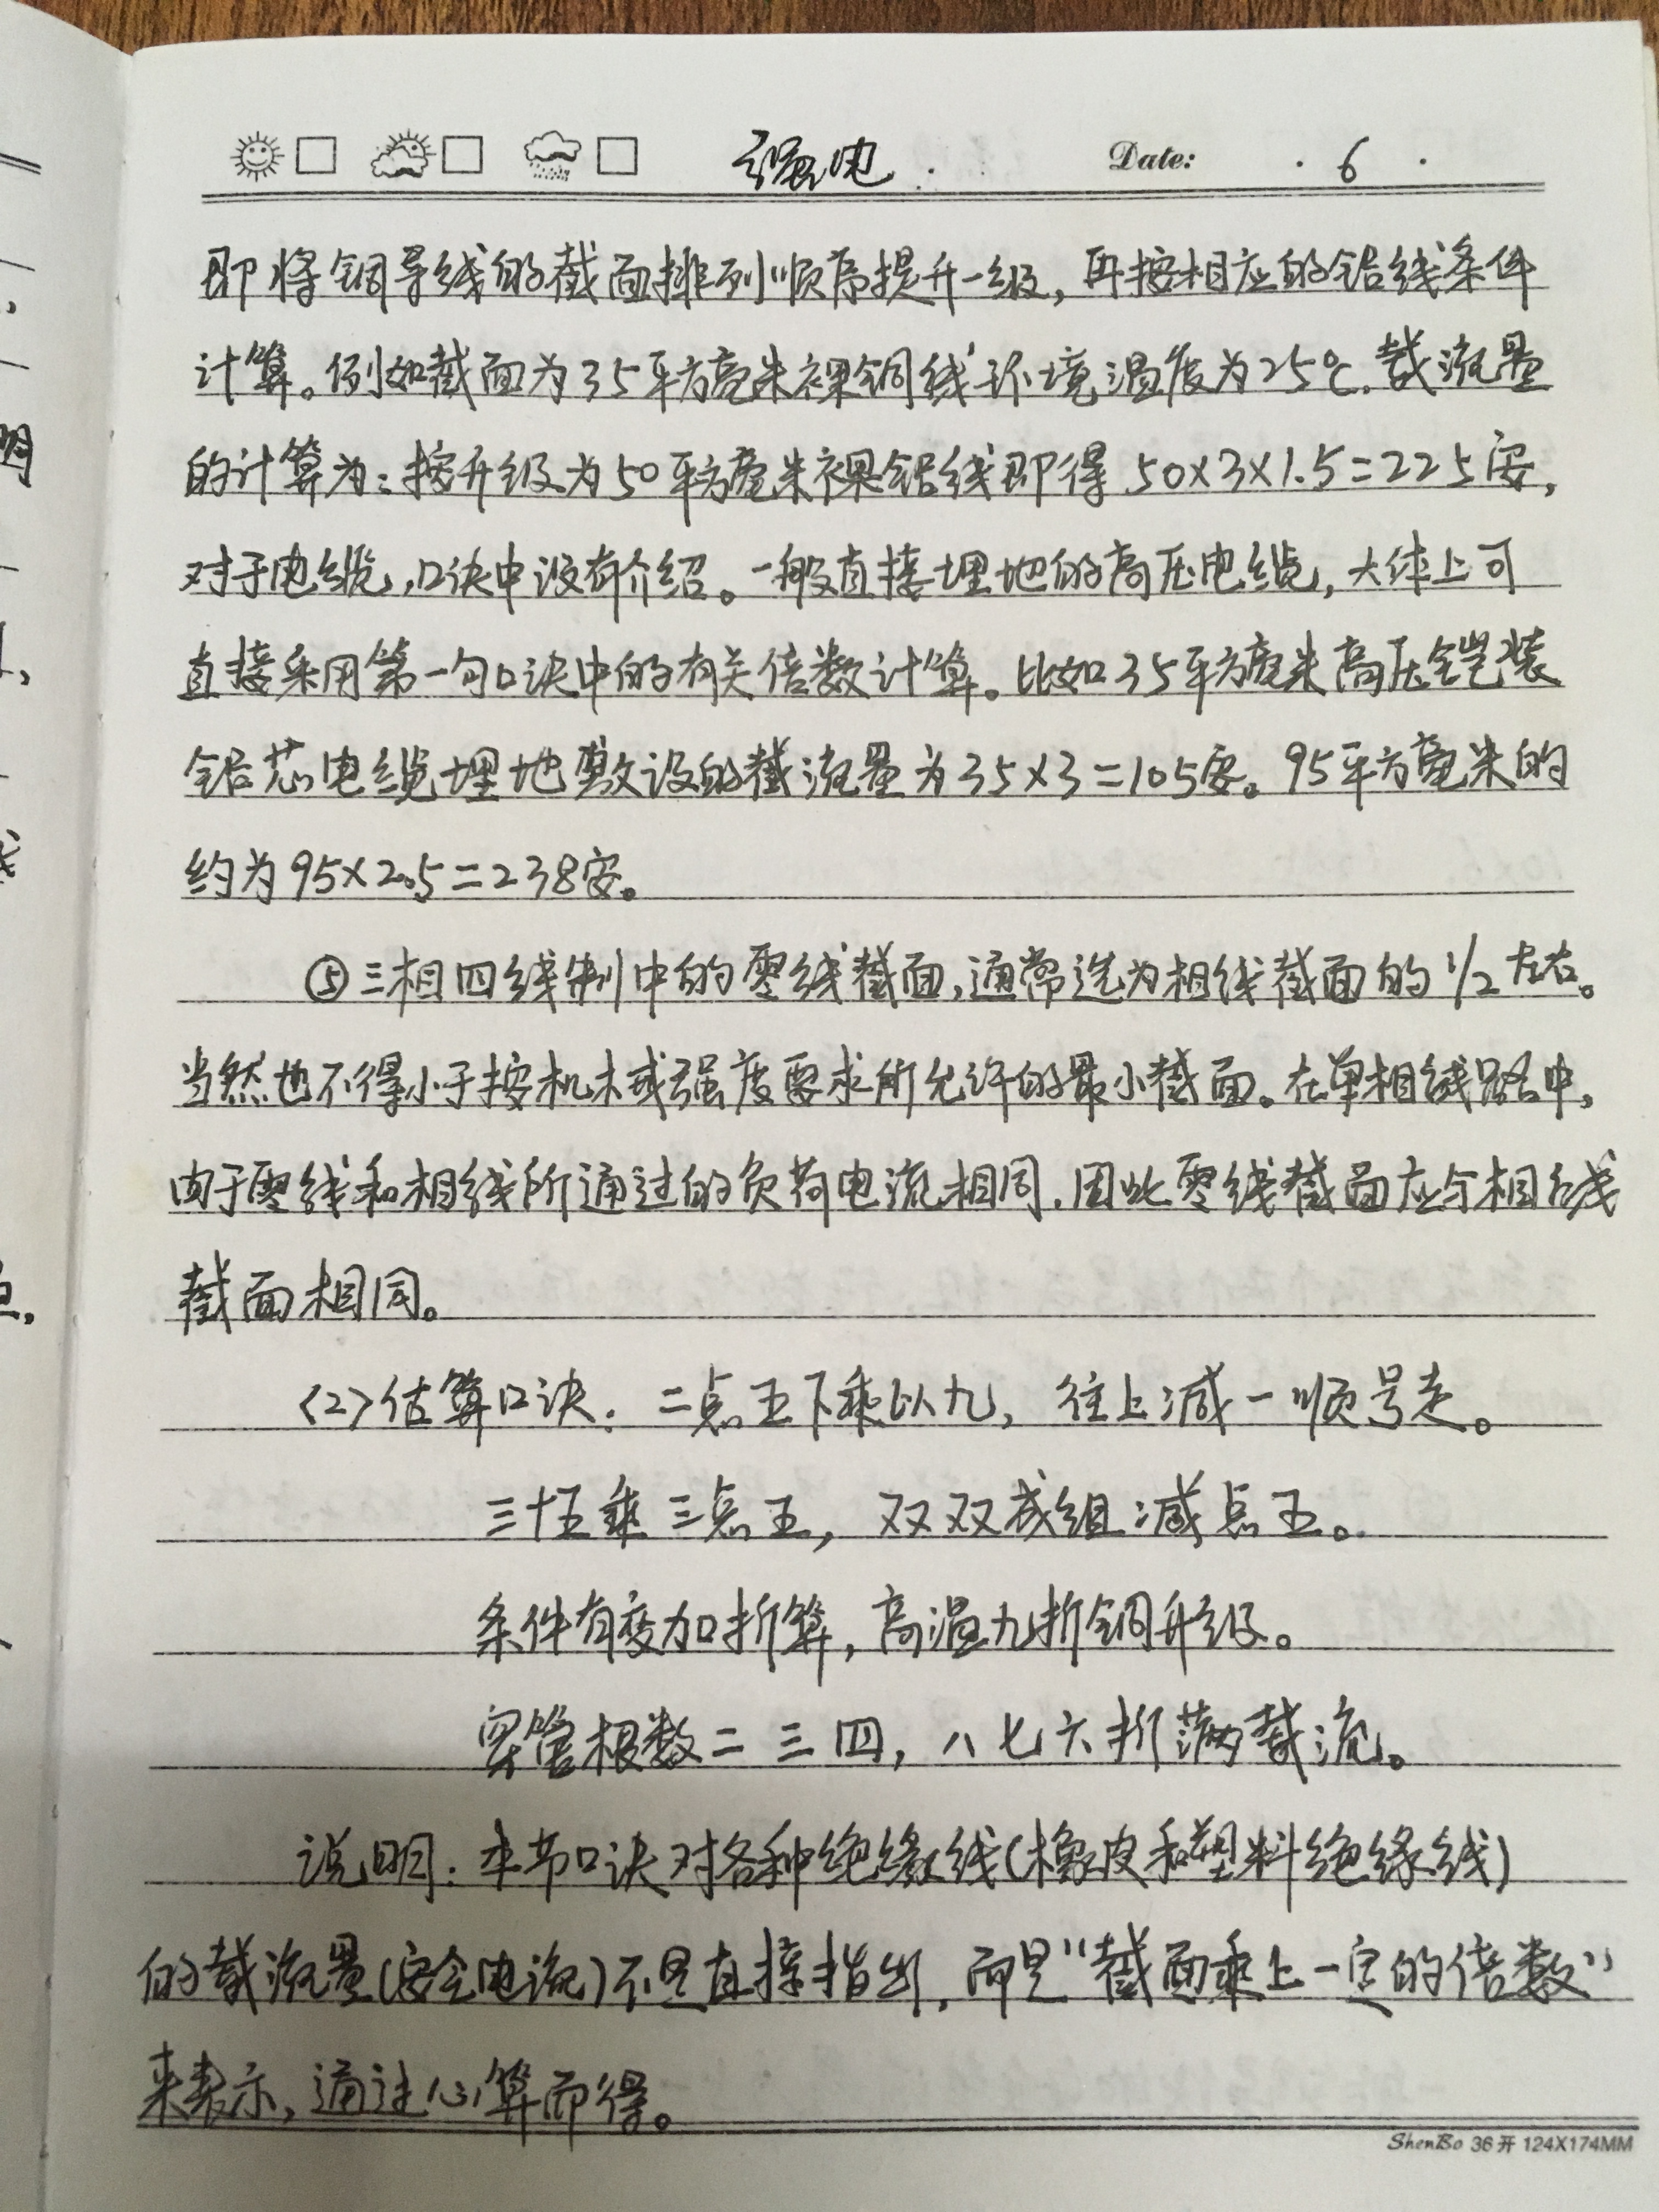 强电
Date: · 6 ·
即将铜导线的截面排列顺序提升一级，再按相应的铝线条件
计算。例如截面为35平方毫米裸铜线环境温度为25℃.载流量
的计算为：按升级为50平方毫米裸铝线即得50×3×1.5=225安，
对于电缆，口诀中没有介绍。一般直接埋地的高压电缆，大体上可
直接采用第一句口诀中的有关倍数计算。比如35平方毫米高压铠装
铝芯电缆埋地敷设的截流量为35×3=105安。95平方毫米的
约为95×2.5=238安。
⑤三相四线制中的零线截面，通常选为相线截面的1/2左右。
当然也不得小于按机械强度要求所允许的最小截面。在单相线路中，
由于零线和相线所通过的负荷电流相同.因此零线截面应与相线
截面相同。
(2)估算口诀：二点五下乘以九，往上减一顺号走。
三十五乘三点五，双双成组减点五。
条件有变加折算，高温九折铜升级。
穿管根数二三四，八七六折满载流。
说明：本节口诀对各种绝缘线(橡皮和塑料绝缘线)
的载流量(安全电流)不是直接指出，而是“截面乘上一定的倍数”
来表示，通过心算而得。
ShenBo 36开 124X174MM
明